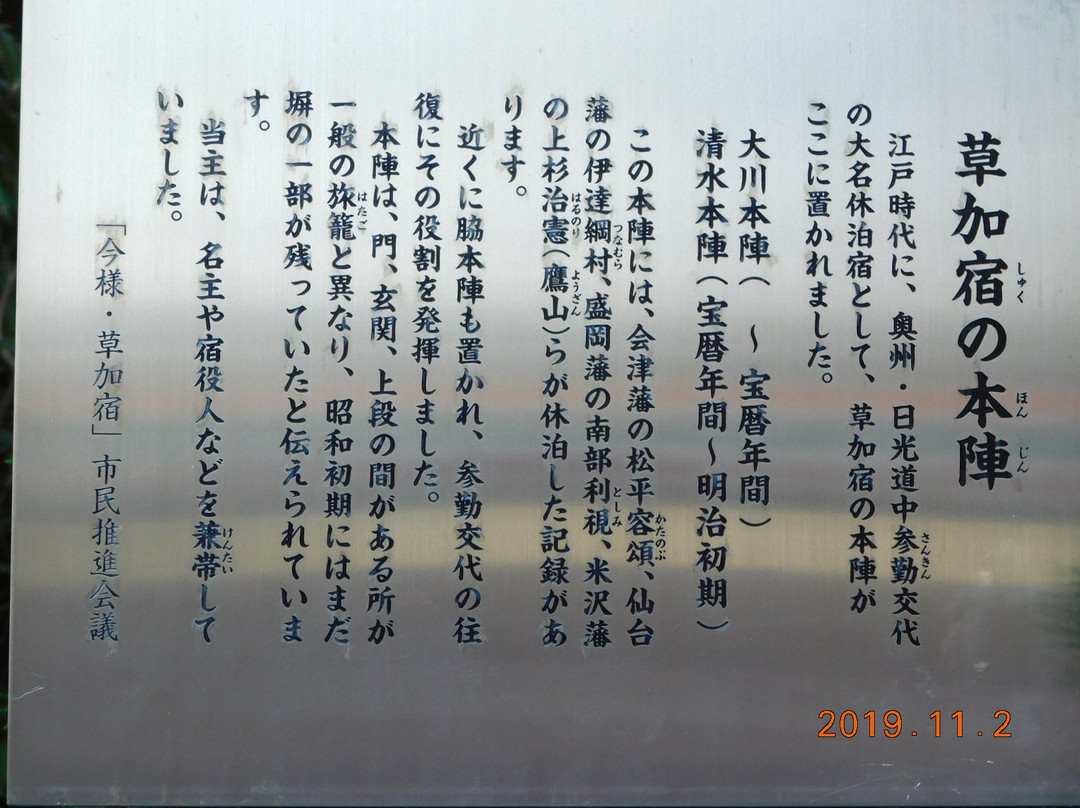 草加宿の本陣
江戸時代に、奥州・日光道中参勤交代
の大名休泊宿として、草加宿の本陣が
ここに置かれました。
大川本陣(　～宝暦年間)
清水本陣(宝暦年間～明治初期)
この本陣には、会津藩の松平容頌、仙台
藩の伊達綱村、盛岡藩の南部利視、米沢藩
の上杉治憲(鷹山)らが休泊した記録があ
ります。
近くに脇本陣も置かれ、参勤交代の往
復にその役割を発揮しました。
本陣は、門、玄関、上段の間がある所が
一般の旅籠と異なり、昭和初期にはまだ
塀の一部が残っていたと伝えられていま
す。
当主は、名主や宿役人などを兼帯して
いました。
「今様・草加宿」市民推進会議
しゅく
ほんじん
さんきん
かたのぶ
つなむら
としみ
はるのり
ようざん
はたご
けんたい
2019.11.2